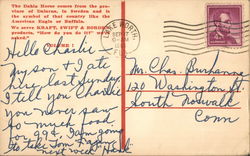 The Dahla Horse comes from the pro-
vince of Dalarna, in Sweden and is
the symbol of that country like the
American Eagle or Buffalo.
We serve KRAFT, SWIFT & BORDEN
products. "How do you do it?" we're
asked.
LAKE WORTH
SEP 12
FLA.
Hello Charlie
My son & I ate
here last Sunday.
I tell you Charlie
you never saw
so much food
for 99¢. I am going
to take Tom
next week. Hank
Mr. Chas. Burhance
120 Washington St.
South Norwalk
Conn